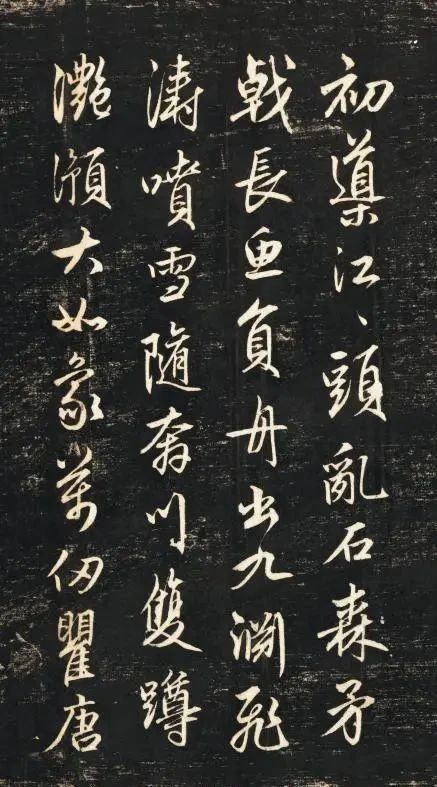 初導江〻頭亂石森矛
戟長魚負舟出九淵飛
濤噴雪隨奔川雙蹲
灩澦大如象萬仞瞿唐